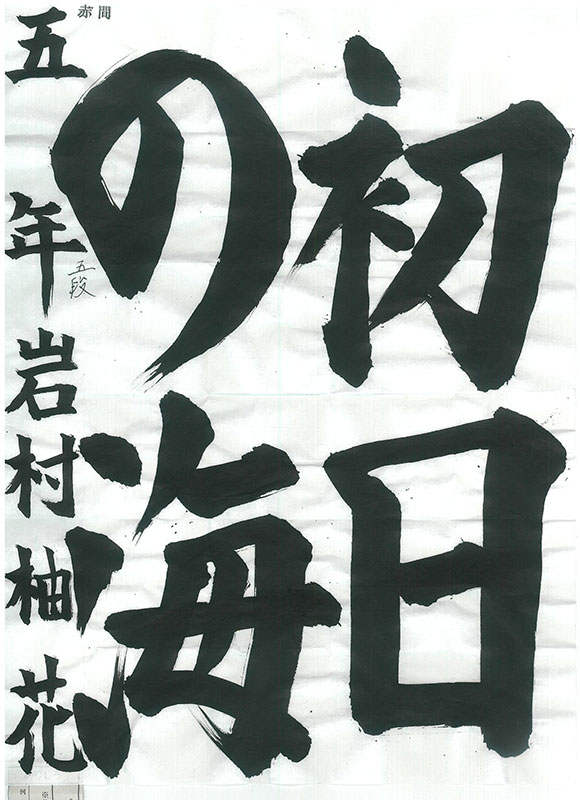 初日
の海
五年岩村柚花
五段
赤間